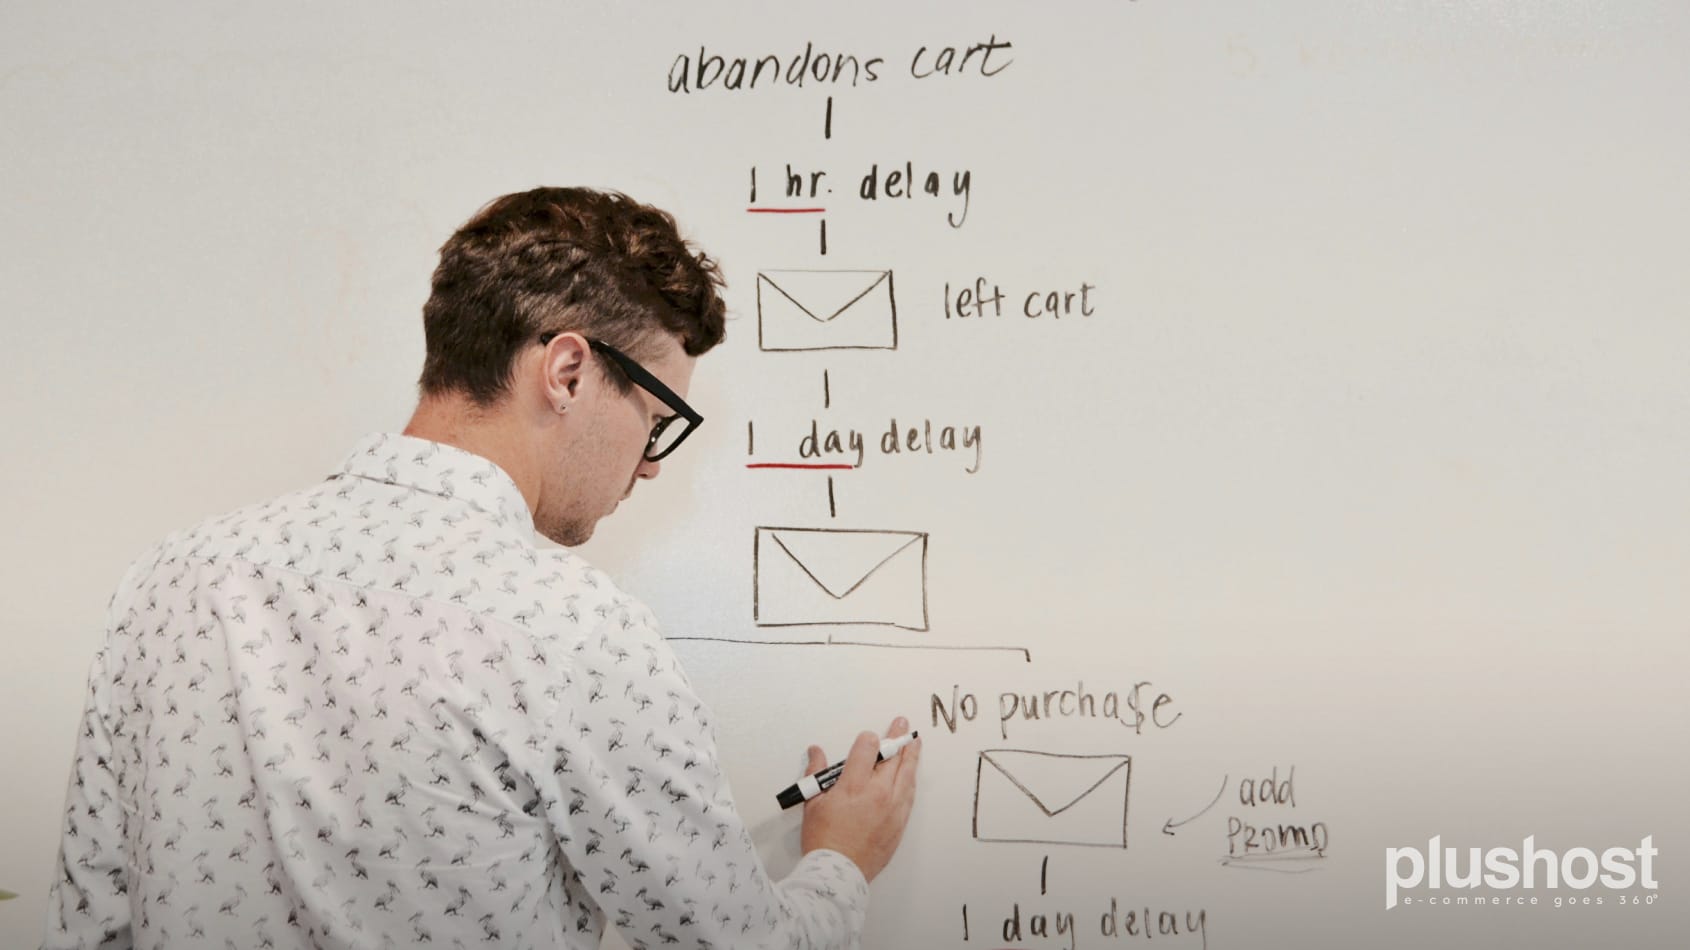 abandons cart
1 hr. delay
left cart
1 day delay
No purcha$e
add
PROMO
1 day delay
plushost
e-commerce goes 360°